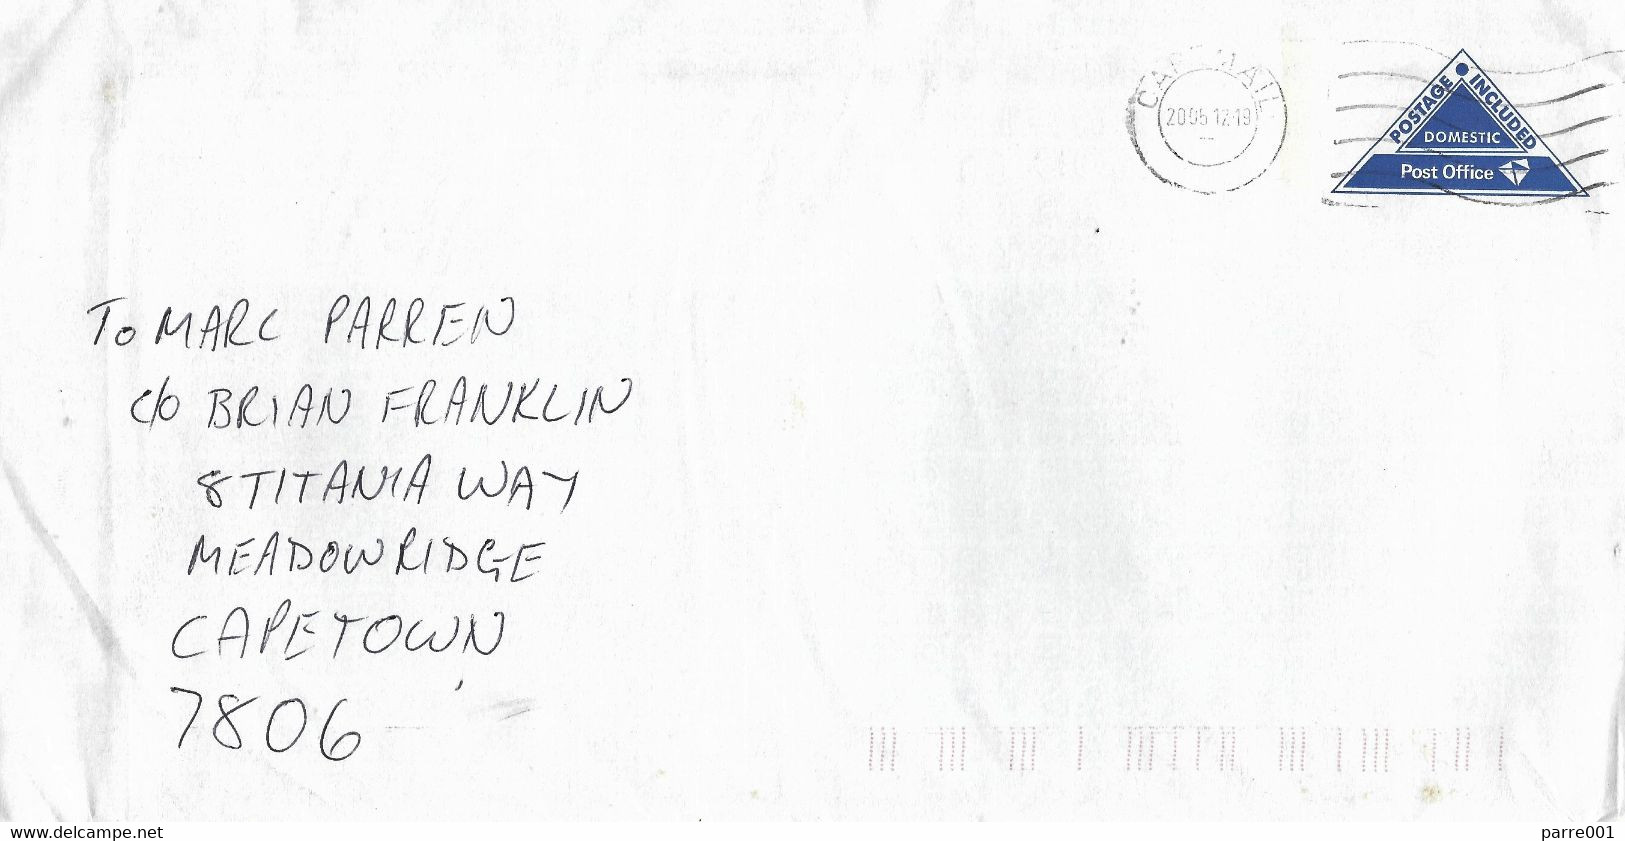 CAPE MAIL
2005 12 19
POSTAGE INCLUDED
DOMESTIC
Post Office
To MARC PARREN
c/o BRIAN FRANKLIN
8 TITANIA WAY
MEADOWRIDGE
CAPETOWN
7806
www.delcampe.net
parre001